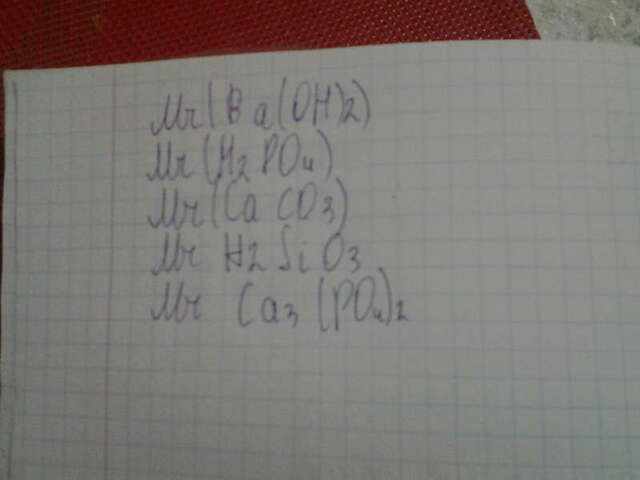 Mr(Ba(OH)2)
Mr(H2PO4)
Mr(CaCO3)
Mr H2SiO3
Mr Ca3(PO4)2